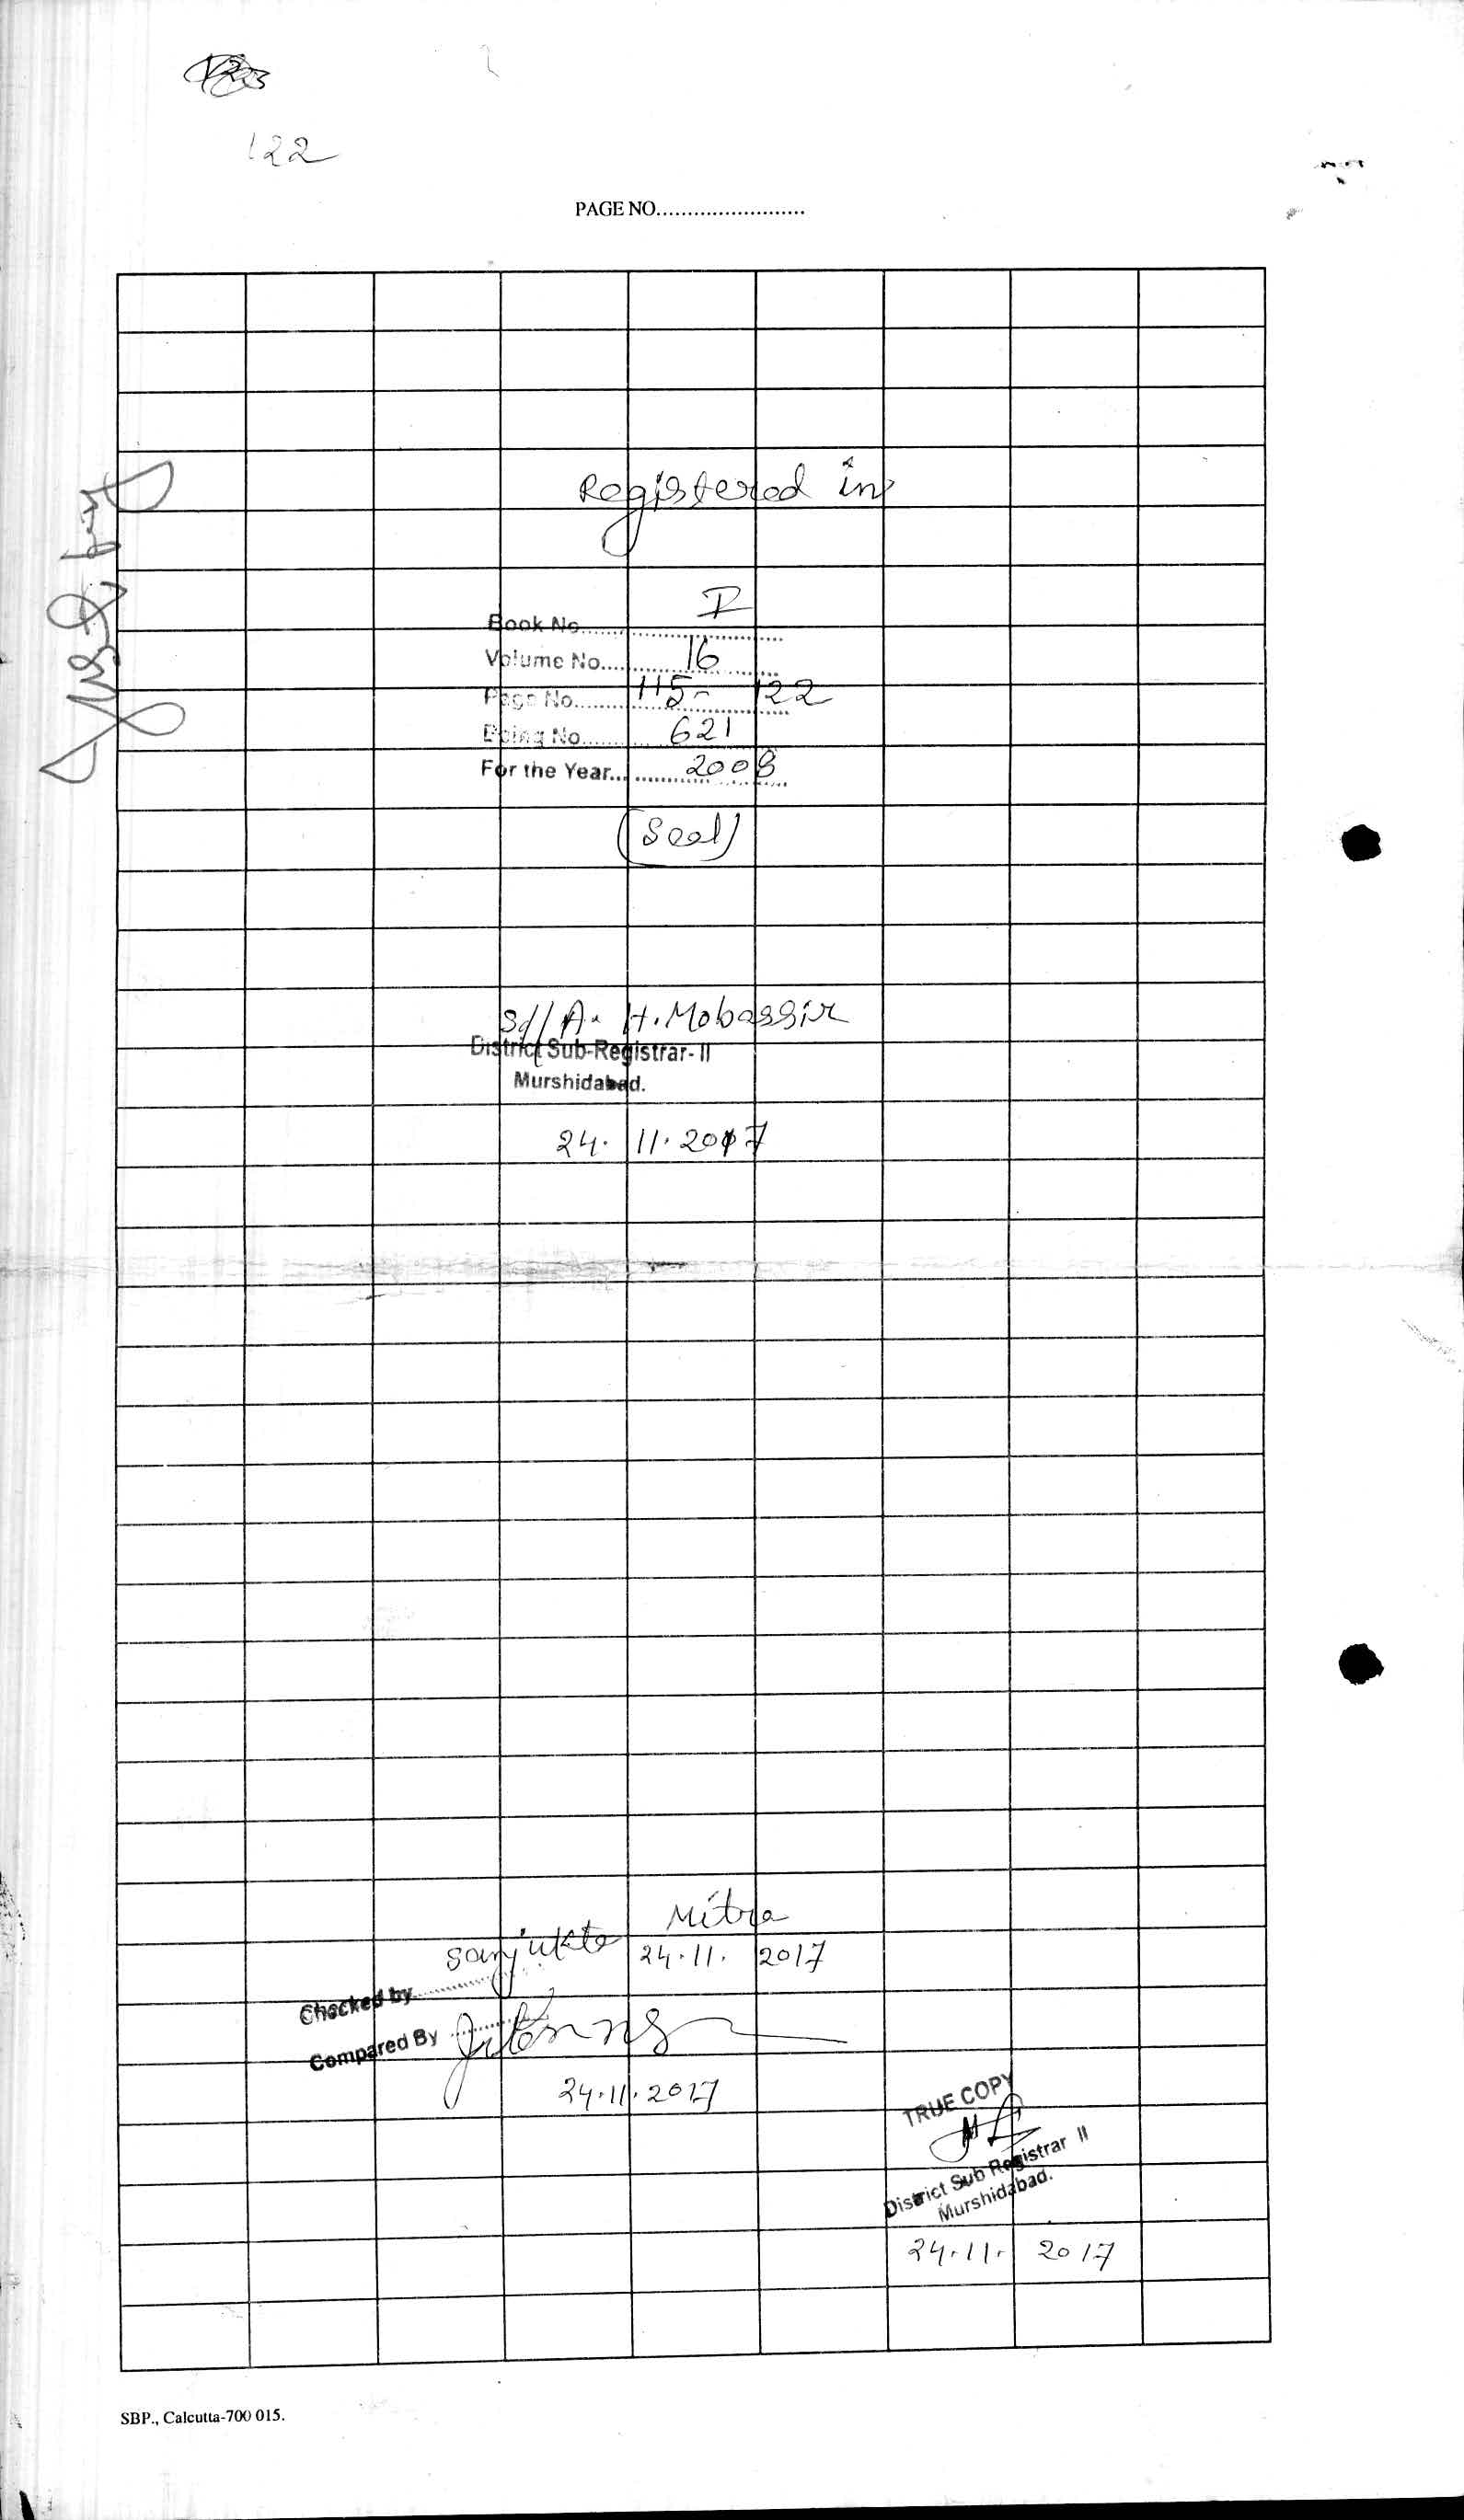 122
PAGE NO........................
Registered in
Book No. I
Volume No. 16
Page No. 115- 122
Being No. 621
For the Year 2008
(Seal)
Sd/ A. H. Mobassir
District Sub-Registrar- II
Murshidabad.
24. 11. 2017
Sanjukta Mitra
Checked by 24.11. 2017
Compared By
24.11.2017
TRUE COPY
District Sub Registrar II
Murshidabad.
24.11. 2017
SBP., Calcutta-700 015.